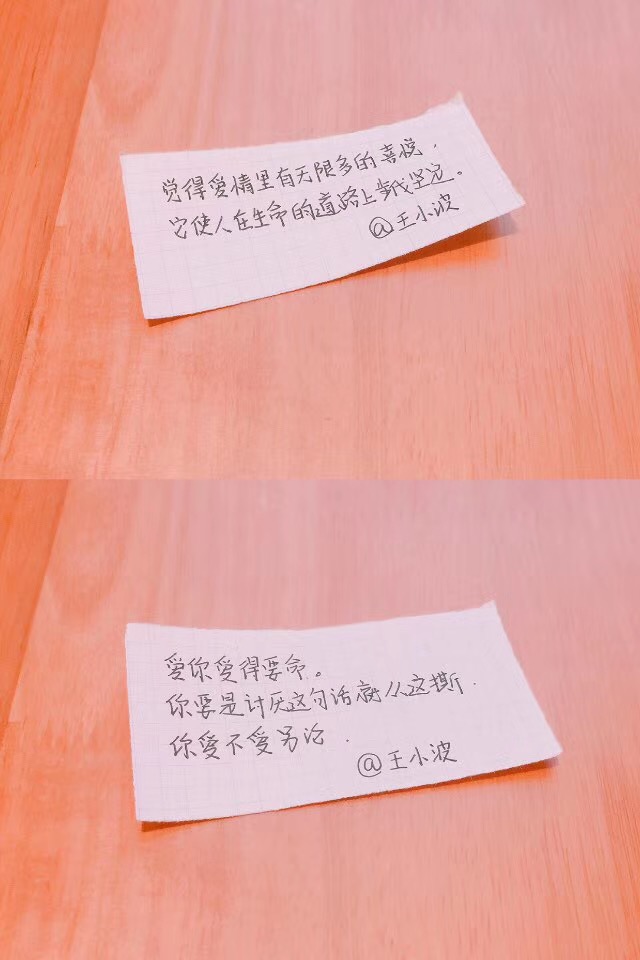 觉得爱情里有无限多的喜悦，
它使人在生命的道路上步伐坚定。
@王小波
爱你爱得要命。
你要是讨厌这句话就从这撕．
你爱不爱另论．
@王小波